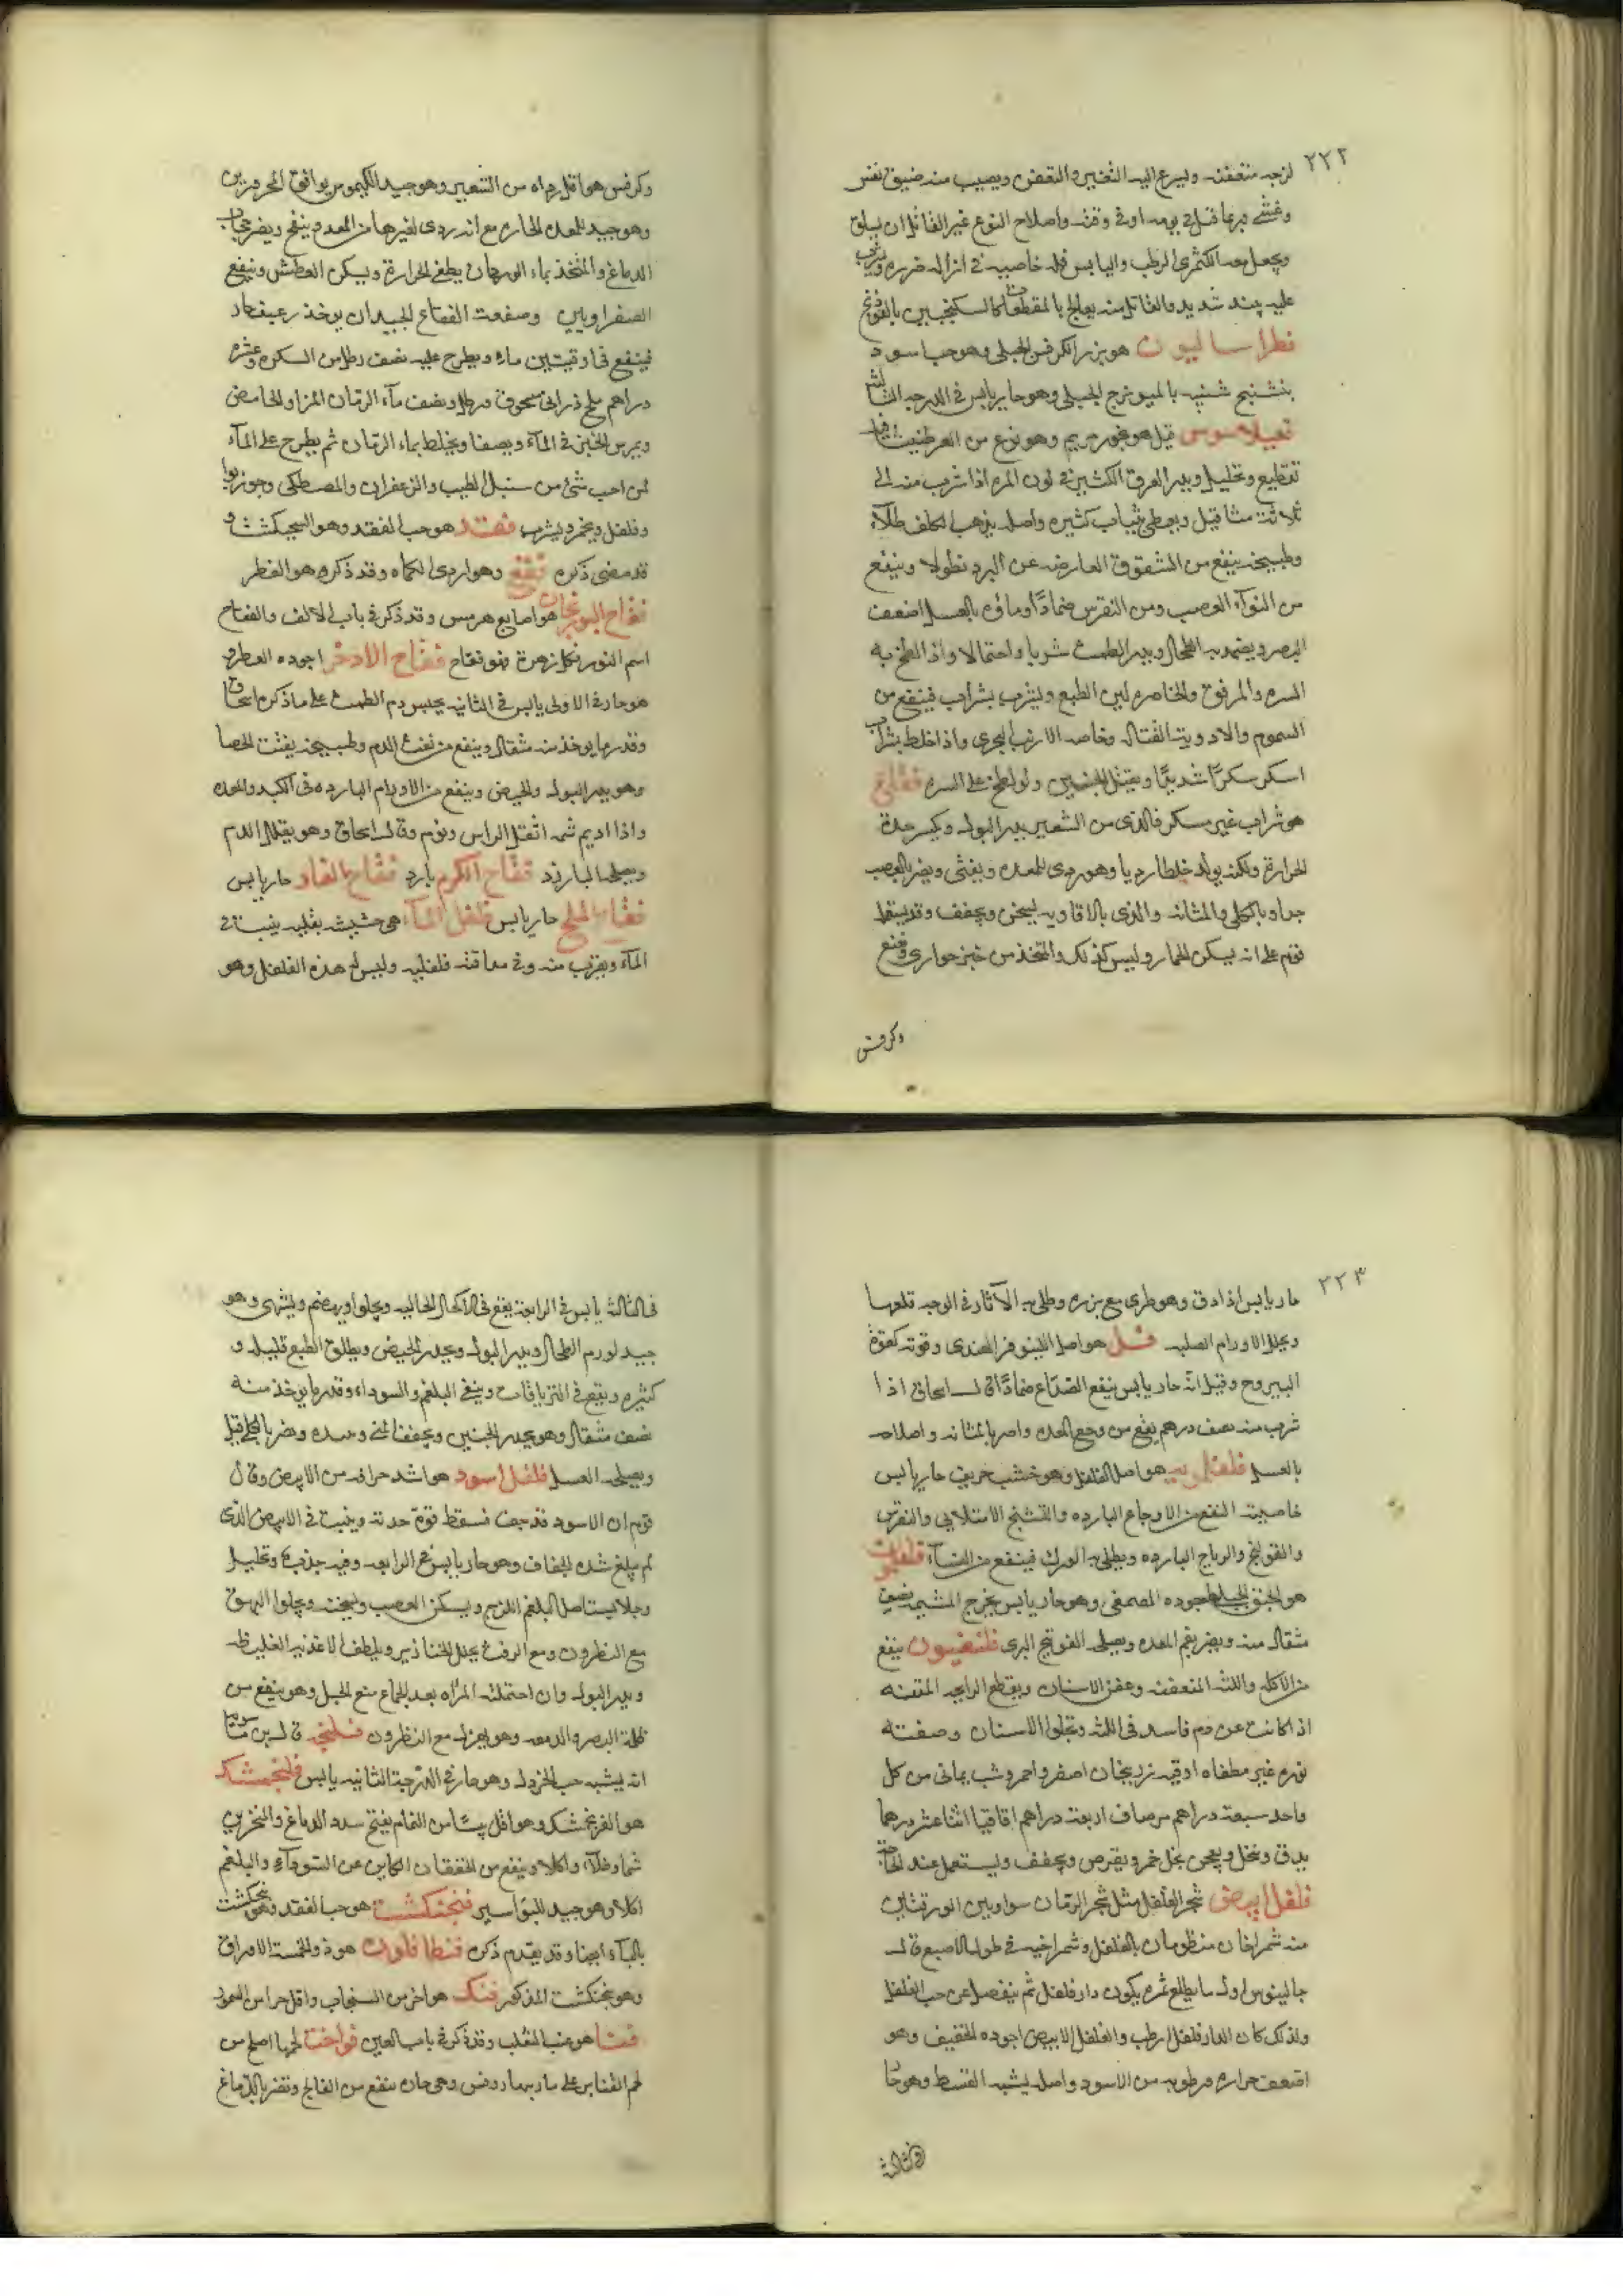 ٢٢٢
لزجه متعفنه ويسرع اليه التغير والتعفن ويصيب منه ضيق نفس
وغشى وربما قتل فى يومه او فى وقته واصلاح النوع غير القاتل ان يسلق
ويجعل معه الكمثرى الرطب واليابس فله خاصيه فى ازاله ضرره ويشرب
عليه نبيذ شديد والقاتل منه يعالج بالمقطعات كالسكنجبين بالفودنج
فطراساليون هو بزر الكرفس الجبلى وهو حب اسود
شبيه بالميويزج الجبلى وهو حار يابس فى الدرجه الثالثه
قيل هو بخور مريم وهو نوع من العرطنيثا فيه
تقطيع وتحليل ويدر العرق الكثير فى لون المره اذا شرب منه الى
ثلاثة مثاقيل ويغطى بثياب كثيره واصله يذهب الكلف طلاء
وطبيخه ينفع من الشقوق العارضه عن البرد نطولا وينفع
من التواء العصب ومن النقرس ضمادًا وماؤه بالعسل لضعف
البصر ويضمد به الطحال ويدر الطمث شربا واحتمالا واذا لطخ به
السره والمراق والخاصره لين الطبع ويشرب بشراب فينفع من
السموم والادوية القتاله وخاصه الارنب البحرى واذا خلط بشراب
اسكر سكرًا شديدًا ويقتل الجنين ولو لطخ على السره فقاع
هو شراب غير مسكر فالذى من الشعير يدر البول ويكسر حدة
الحرارة ولكنه يولد خلطا رديا وهو ردى للمعده ويغثى ويضر بالعصب
جدا وبالكلى والمثانه والذى بالافاويه يسخن ويجفف وقد يسقط
قوم على انه يسكن الخمار وليس كذلك والمتخذ من خبز حوارى ونعنع
وكرفس
وكرفس هو اقل رداه من الشعير وهو جيد الكيموس يوافق المحرورين
وهو جيد للمعده الحاره مع انه ردى لغيرها من المعد وينفخ ويضر بحجاب
الدماغ والمتخذ بماء الرمان يطفى الحرارة ويسكن العطش وينفع
الصفراويين وصفت الفقاع الجيد ان يوخذ رغيف حار
فينقع فى اوقيتين ماء ويطرح عليه نصف رطل من السكر وعشره
دراهم ملح ذرانى مسحوق ورطل ونصف ماء الرمان المز او الحامض
ويمرس الخبز فى الماء ويصفا ويخلط بماء الرمان ثم يطرح على الماء
لمن احب شئ من سنبل الطيب والزعفران والمصطكى وجوزبوا
وفلفل ويخمر ويشرب فقد هو حب الفقد وهو البنجنكشت و
قد مضى ذكره فقع وهو اردى الكماه وقد ذكره هو الفطر
فقاح البورنجان هو اصابع هرمس وقد ذكر فى باب الالف والفقاح
اسم النور فكل زهرة هو فقاح فقاح الاذخر اجوده العطر و
هو حار فى الاولى يابس فى الثانيه يحبس دم الطمث على ما ذكره اسحاق
وقدر ما يوخذ منه مثقال وينفع من نفث الدم وطبيخه يفتت الحصا
وهو يدر البول والحيض وينفع من الاورام البارده فى الكبد والمعده
واذا اديم شمه اثقل الراس ونوم وقال اسحاق وهو يقلل الدم
ويصلحه فقاح الكرم بارد فقاح الغار حار يابس
فقاح الملح حار يابس فلفل الماء هى حشيشه بقليه ينبت فى
الماء وبقرب منه وفى مذاقته فلفليه وليس له هذه الفلفل وهو
٢٢٣
حار يابس اذا دق وهو طرى مع بزره وطلى به الآثار فى الوجه قلعها
ويحلل الاورام الصلبه فل هو اصل اللينوفر الهندى وقوته كقوة
اليبروح وقيل انه حار يابس ينفع الصداع ضمادًا قال اسحاق اذا
شرب منه نصف درهم ينفع من وجع المعده واضر بالمثانه واصلاحه
بالعسل فلفلمويه هو اصل الفلفل وهو خشب حريف حار يابس
خاصيته النفع من الاوجاع البارده والتشنج الامتلايى والنقرس
والقولنج والرياح البارده ويطلى به الورك فينفع من النساء
هو الحبق الجبلى اجوده الصعفى وهو حار يابس يخرج المشيمه نصف
مثقال منه ويضر بفم المعده ويصلحه الفوتنج البرى فلدفيون ينفع
من الاكله واللثه المتعفنه وعفن الاسنان ويقطع الرايحه المنتنه
اذا كانت عن دم فاسد فى اللثه ويجلوا الاسنان وصفته
نوره غير مطفاه اوقيه زرنيخان اصفر واحمر وشب يمانى من كل
واحد سبعة دراهم مر صاف اربعة دراهم اقاقيا اثنا عشر درهما
يدق وينخل ويعجن بخل خمر ويقرص ويجفف ويستعمل عند الحاجه
فلفل ابيض شجر الفلفل مثل شجر الرمان سوا وبين الورقتين
منه شمراخان منظومان بالفلفل وشمراخيه فى طول الاصبع قال
جالينوس اول ما يطلع ثمره يكون دارفلفل ثم ينفصل عن حب الفلفل
ولذلك كان الدارفلفل ارطب والفلفل الابيض اجوده الخفيف وهو
اضعف حراره ورطوبه من الاسود واصله يشبه القسط وهو حار
فى الثالثه
فى الثالثه يابس فى الرابعة ينفع فى الاكحال الجاليه ويجلوا ويهضم ويشهى وهو
جيد لورم الطحال ويدر البول ويحدر الحيض ويطلق الطبع قليله و
كثيره ويقع فى الترياقات وينقى البلغم والسوداء وقدر ما يوخذ منه
نصف مثقال وهو يحدر الجنين ويجفف المنى ويبدده ويضر بالكلى قيل
ويصلحه العسل فلفل اسود هو اشد حرافه من الابيض وقال
قوم ان الاسود قد جف فسقط قوة حدته ويثبت فى الابيض الذى
لم يبلغ شده الجفاف وهو حار يابس فى الرابعه وفيه جذب وتحليل
وجلا يستاصل البلغم اللزج ويسكن العصب ويسخنه ويجلوا البهق
مع النطرون ومع الزفت يحلل الخنازير ويلطف الاغذيه الغليظه
ويدر البول وان احتملته المراه بعد الجماع منع الحبل وهو ينفع من
ظلمة البصر والدمعه وهو يهزل مع النطرون فلنجه قال بن ماسويه
انه يشبه حب الخردل وهو حار فى الدرجة الثانيه يابس فلنجمشك
هو الفرنجمشك وهو اقل يبسًا من النمام يفتح سدد الدماغ والمنخرين
شما وطلاء واكلا وينفع من الخفقان الكاين عن السوداء والبلغم
اكلا وهو جيد للبواسير فنجنكشت هو حب الفقد وهو بنجنكشت
بالباء ايضا وقد يقدم ذكره فنطافلون هو ذو الخمسة الاوراق
وهو بنجنكشت المذكور فنك هو احر من السنجاب واقل حرا من السمور
فنا هو عنب الثعلب وقد ذكر فى باب العين فواخت لحمها اصلح من
لحم القنابر على ما وهى حاره تنفع من الفالج وتضر بالدماغ